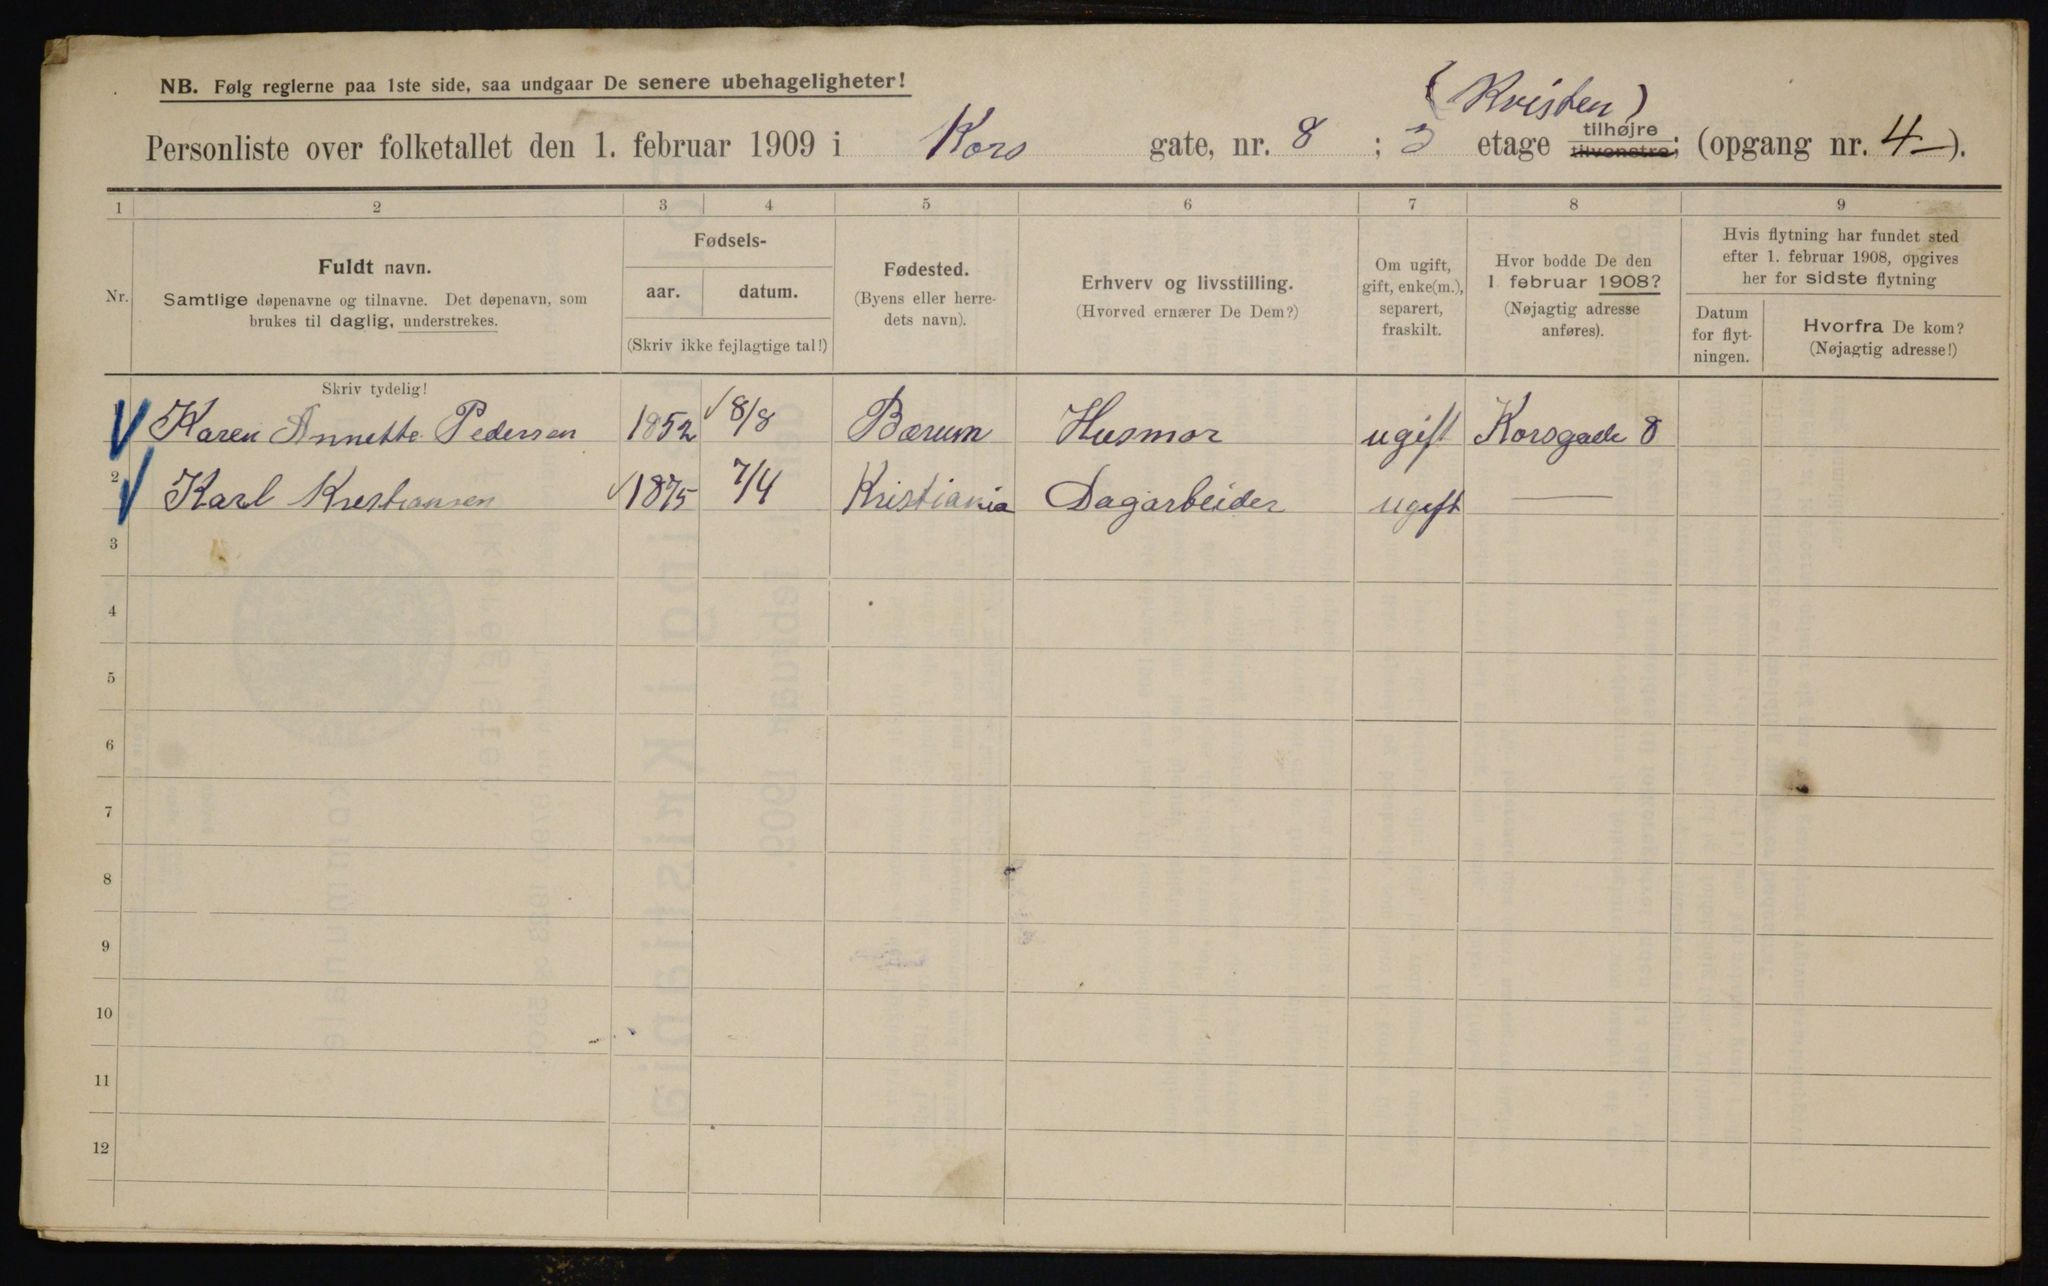 NB. Følg reglerne paa 1ste side, saa undgaar De senere ubehageligheter!
(Kvisten)
Personliste over folketallet den 1. februar 1909 i Kors gate, nr. 8 ; 3 etage tilhøjre tilvenstre; (opgang nr. 4).
1 2 3 4 5 6 7 8 9
Nr.
Fuldt navn.
Samtlige døpenavne og tilnavne. Det døpenavn, som
brukes til daglig, understrekes.
Fødsels-
aar. datum.
(Skriv ikke fejlagtige tal!)
Fødested.
(Byens eller herre-
dets navn).
Erhverv og livsstilling.
(Hvorved ernærer De Dem?)
Om ugift,
gift, enke(m.),
separert,
fraskilt.
Hvor bodde De den
1. februar 1908?
(Nøjagtig adresse
anføres).
Hvis flytning har fundet sted
efter 1. februar 1908, opgives
her for sidste flytning
Datum
for flyt-
ningen.
Hvorfra De kom?
(Nøjagtig adresse!)
Skriv tydelig!
1 Karen Annette Pedersen 1852 8/8 Bærum Husmor ugift Korsgade 8
2 Karl Kristiansen 1875 7/4 Kristiania Dagarbeider ugift —
3
4
5
6
7
8
9
10
11
12